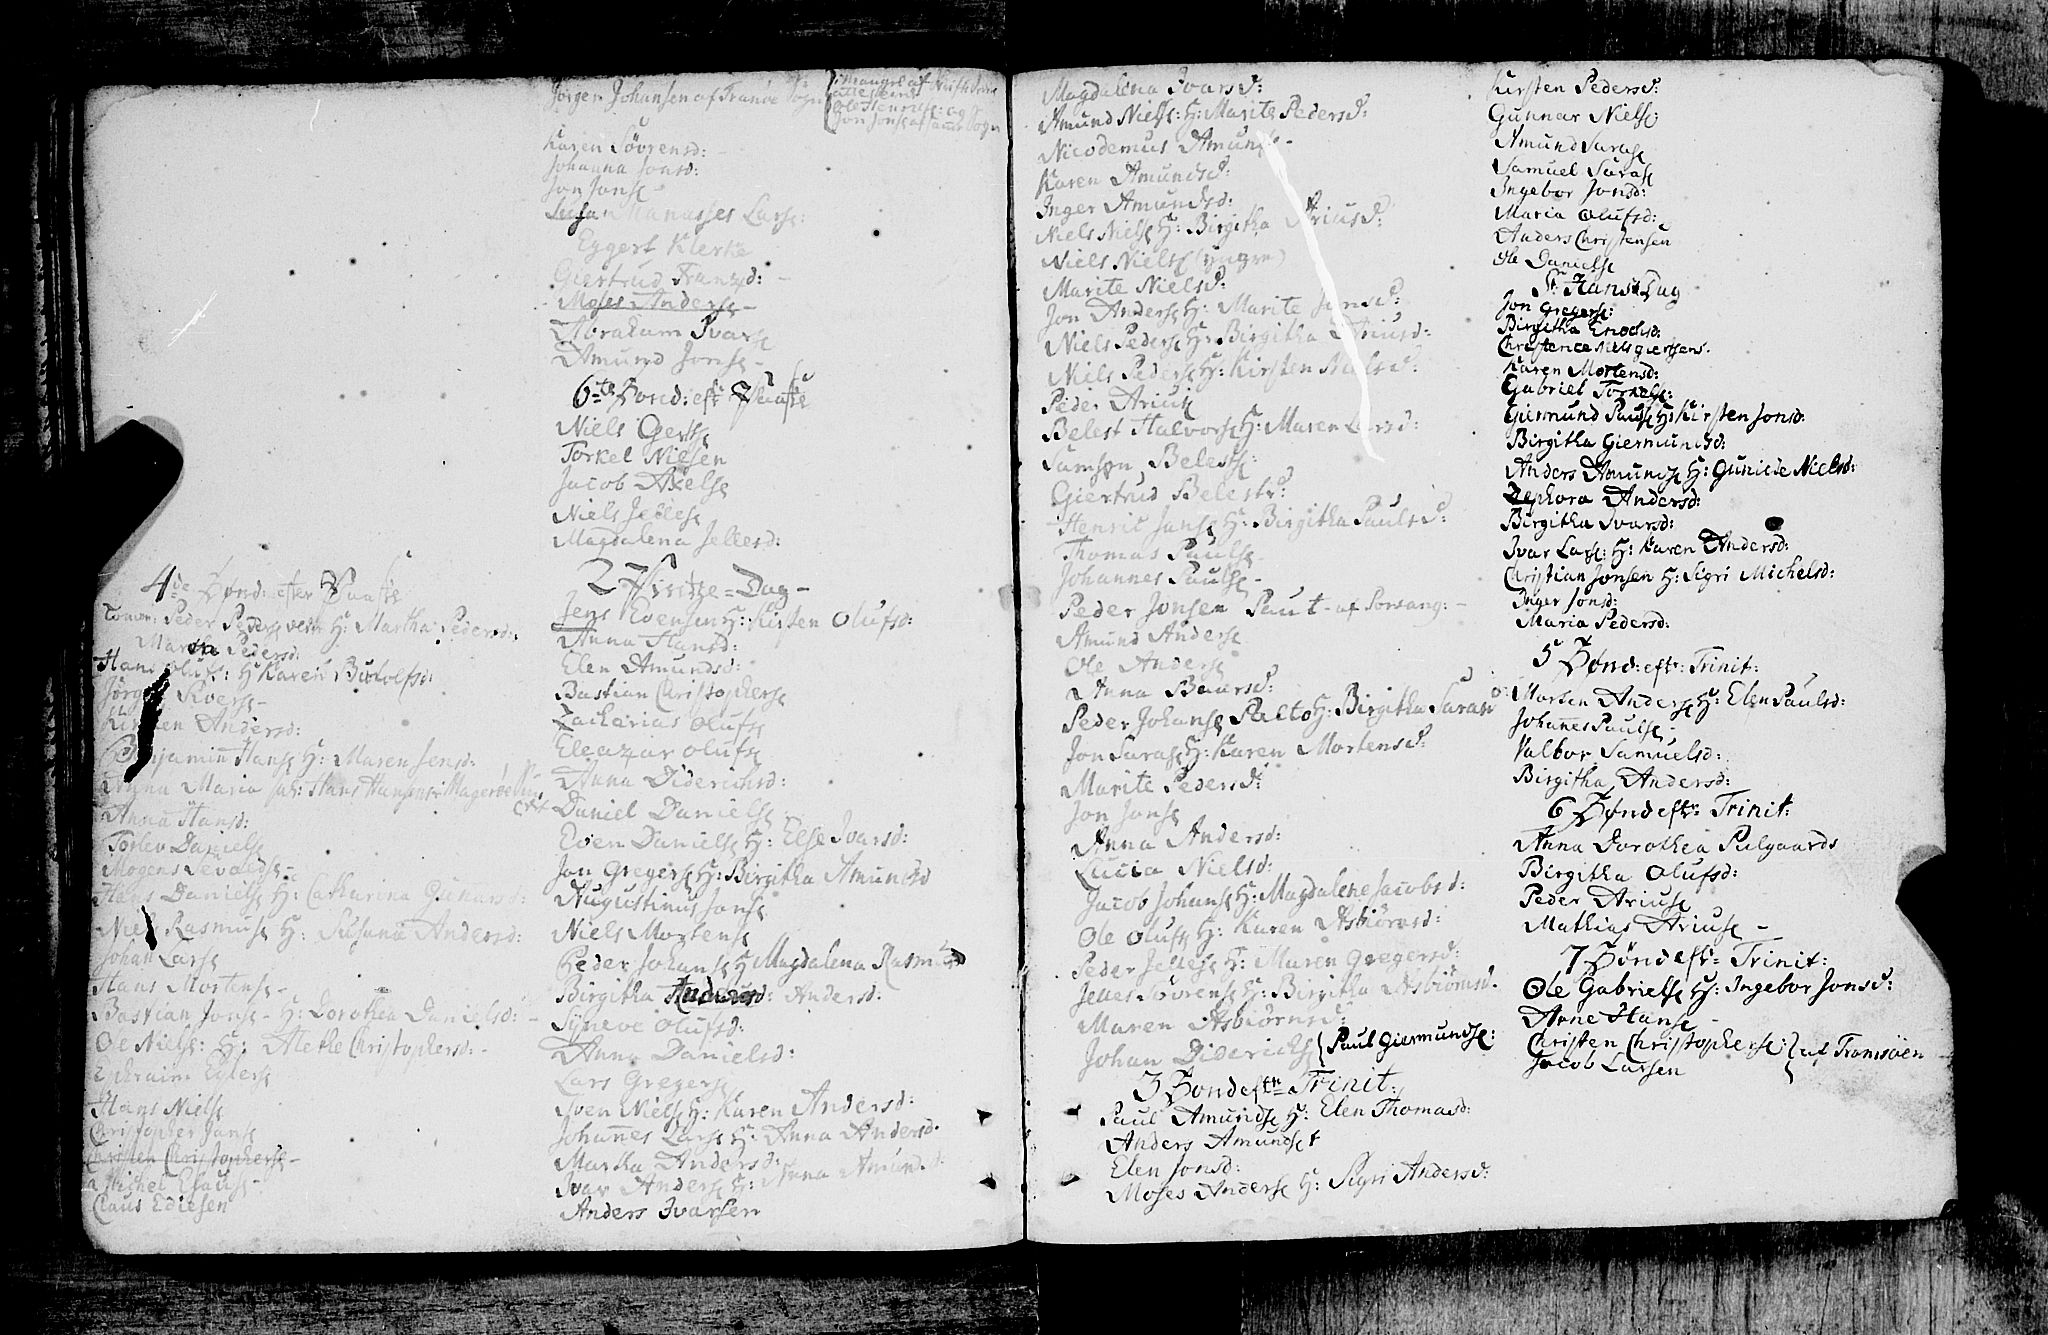 4de Sønd: efter Paaske
Peder Peders H: Martha Pedersd:
Maren Pedersd:
Hans Olufs: H: Karen
Jørgen Ivers-
Kirsten Andersd:
Benjamin Hans H: Maren Jensd:
Anna Maria Hans Hansens Magerøe
Anna Hansd:
Torlev Daniels
Mogens Sevalds-
Hans Daniels H: Catharina Gunarsd:
Niels Rasmus H: Susana Andersd:
Johan Lars
Hans Mortens-
Bastian Jons- H: Dorothea Danielsd:-
Ole Niels: H: Alethe Christophersd:-
Ephraim
Hans Niels
Christopher Jans
Christen Christophers-
Michel Esaus-
Claus Ediesen
Jørgen Johansen af Tranøe Sogn
Karen Sövrensd:
Johanna Jonsd:
Jon Jons-
Manasses Lars:
Eggert Klerke
Giertrud Franzd:-
Moses Anders-
Abraham Ivars
Amund Jons-
6te Sond: eftr Paaske
Niels Gerts
Torkel Nielsen
Jacob Axels
Niels Jelles
Magdalena Jellesd:
2 Pintze=Dag-
Jens Evensen H: Kirsten Olufsd:
Anna Hansd:
Elen Amundsd:
Bastian Christophers
Zacharias Olufs
Eleazar Olufs
Anna Diderichsd:
Daniel Daniels
Even Daniels H: Else Ivarsd:
Jon Gregers H: Birgitha Amundsd
Augustinus Jons
Niels Mortens
Peder Johans H: Magdalena Rasmusd
Birgitha Andersd: Andersd:
Syneve Olufsd:
Anna Danielsd:
Lars Gregers
Sven Niels H: Karen Andersd:
Johannes Lars H: Anna Andersd.
Martha Andersd:
Ivar Anders H: Anna Amundsd:
Anders Ivarsen
Magdalena Ivarsd:
Amund Niels: H: Marite Pedersd:
Nicodemus Amunds-
Karen Amundsd:
Inger Amundsd:
Niels Niels H: Birgitha Ariusd:
Niels Niels (yngre)
Marite Nielsd:
Jon Anders H: Marite Jonsd:
Niels Peders H: Birgitha Ariusd:
Niels Peders H: Kirsten Nielsd:
Peder Arius
Belest Halvors H: Maren Larsd:
Samson Belests:
Giertrud Belestsd:
Henric Jans H: Birgitha Paulsd:
Thomas Pauls
Johannes Pauls-
Peder Jonsen Paut- af Porsang:-
Amund Anders
Ole Anders
Anna Baarsd:
Peder Johans Palto H: Birgitha Sarasd:
Jon Saras H: Karen Mortensd:
Marite Pedersd:
Jon Jons
Anna Andersd:
Lucia Nielsd:
Jacob Johans H: Magdalene Jacobsd:
Ole Olufs H: Karen Asbiörnsd:
Peder Jelles H: Maren Gregersd:
Jelles Sörens H: Birgitha Asbiörnsd.
Maren Asbiörnsd:
Johan Diderichs { Paul Giermunds:
3 Sond eftr Trinit:
Paul Amunds H: Elen Thomasd:
Anders Amunds
Elen Jonsd:
Moses Anders H: Sigri Andersd:
Kirsten Pedersd:
Gunnar Niels:
Amund Saras
Samuel Saras
Ingebor Jonsd:
Maria Olufsd:
Anders Christensen
Ole Daniels
St Hans Dag
Jon Gregers:
Birgitha Enochsd:
Christence Niels
Karen Mortensd:
Gabriel Torkels:
Giermund Pauls H: Kirsten Jonsd:
Birgitha Giermundsd:
Anders Amunds H: Guniche Nielsd:
Zephora Andersd:
Birgitha Ivarsd:
Ivar Lars: H: Karen Andersd:
Christian Jonsen H: Sigri Michelsd:
Inger Jonsd:
Maria Pedersd:
5 Sønd: eftr: Trinit:
Morten Anders H: Elen Paulsd:
Johannes Pauls-
Valbor Samuelsd:
Birgitha Andersd:
6 Sønd eftr Trinit:
Anna Dorothea Pulgaards
Birgitha Olufsd:
Peder Arius
Mathias Arius-
7 Sønd eftr Trinit:
Ole Gabriels H: Ingebor Jonsd:
Arne Hans-
Christen Christophers: } af Tromsöen
Jacob Larsen